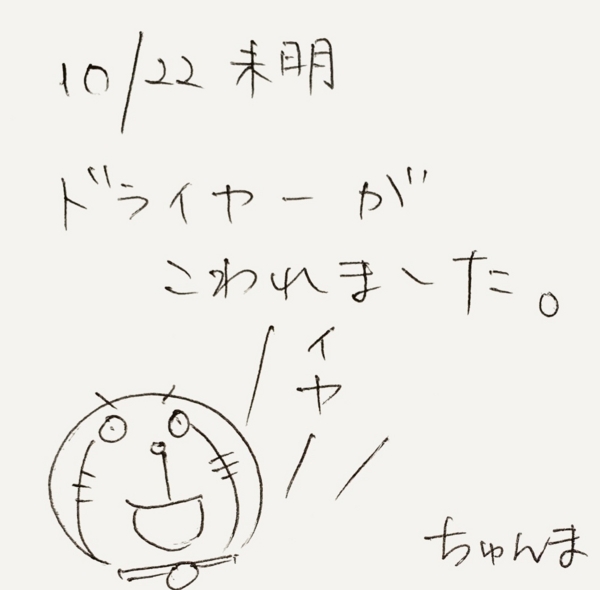 10/22 未明
ドライヤーが
こわれました。
イヤ
ちゅんま